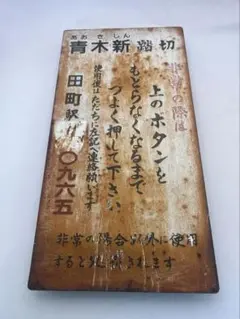 あおきしん
青木新踏切
非常の際は
上のボタンを
もとらなくなるまで
つよく押して下さい
使用後はただちに左記へ連絡願います
田町駅
〇九六五
非常の場合以外に使用
すると
されます